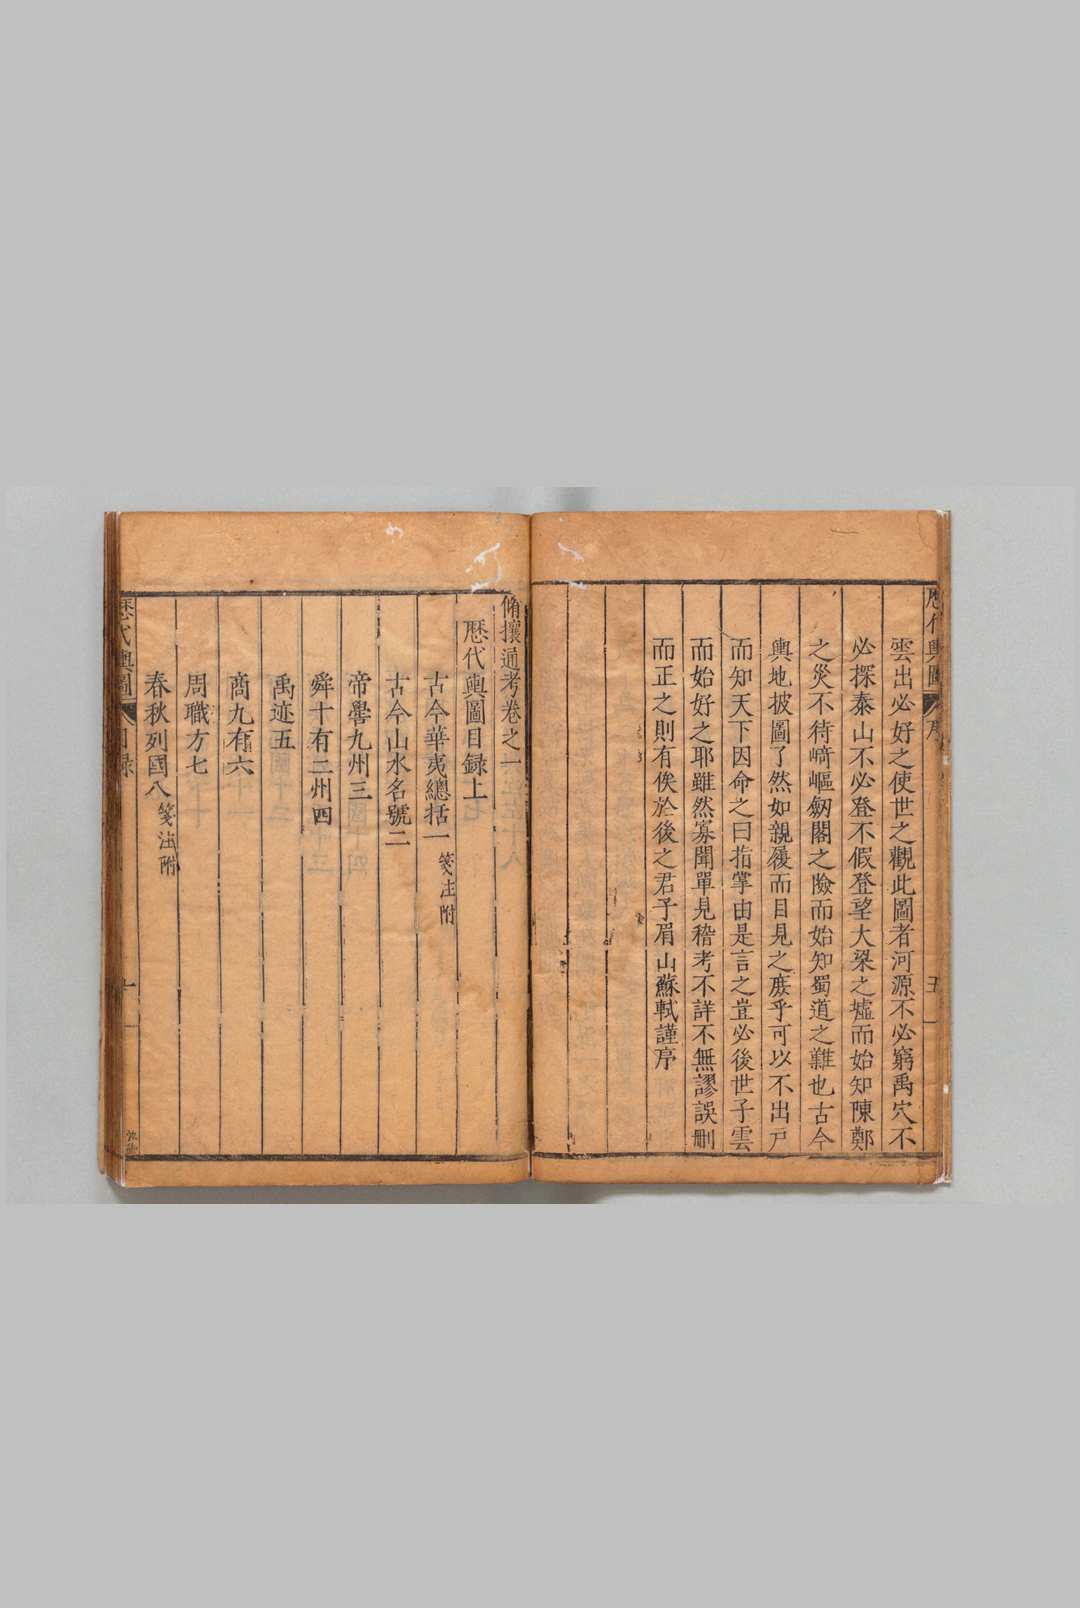 歷代輿圖 序 五
雲出必好之使世之觀此圖者河源不必窮禹穴不
必探泰山不必登不假登望大梁之墟而始知陳鄭
之災不待﨑嶇劒閣之險而始知蜀道之難也古今
輿地披圖了然如親履而目見之庻乎可以不出戸
而知天下因命之曰指掌由是言之豈必後世子雲
而始好之耶雖然寡聞單見稽考不詳不無謬誤刪
而正之則有俟於後之君子眉山蘇軾謹序
脩攘通考卷之一
歷代輿圖目録上
古今華夷總括一 箋注附
古今山水名號二
帝嚳九州三
舜十有二州四
禹迹五
商九有六
周職方七
春秋列國八 箋注附
歷代輿圖 目録